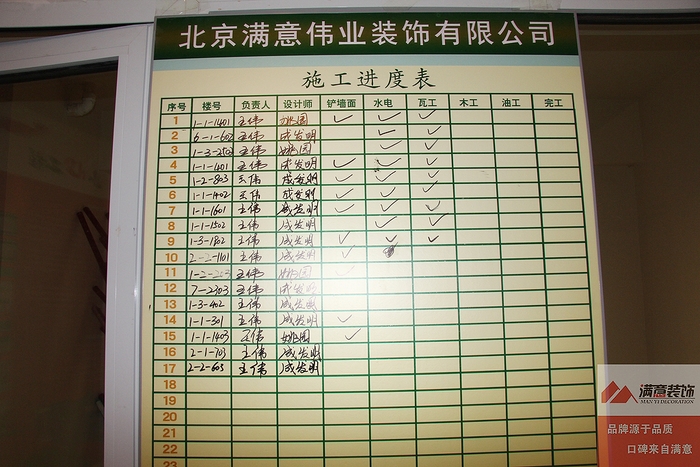 北京满意伟业装饰有限公司
施工进度表
序号 楼号 负责人 设计师 铲墙面 水电 瓦工 木工 油工 完工
1 1-1-1401 王伟 ✓ ✓ ✓
2 6-1-602 王伟 成发明 ✓ ✓
3 1-3-2502 王伟 ✓ ✓
4 1-1-1401 王伟 成发明 ✓ ✓ ✓
5 1-2-803 王伟 成发明 ✓ ✓ ✓
6 1-1-1402 王伟 成发明 ✓ ✓ ✓
7 1-1-1601 王伟 成发明 ✓ ✓ ✓
8 1-1-1502 王伟 成发明 ✓ ✓
9 1-3-1802 王伟 成发明 ✓ ✓ ✓
10 2-2-1101 王伟 成发明 ✓
11 1-2-203 王伟 ✓
12 7-2303 王伟 成发明
13 1-3-402 王伟 成发明
14 1-1-301 王伟 成发明 ✓
15 1-1-1403 王伟 ✓
16 2-1-703 王伟 成发明
17 2-2-603 王伟 成发明
18
19
20
21
22
23
满意装饰
MANYI DECORATION
品牌源于品质
口碑来自满意